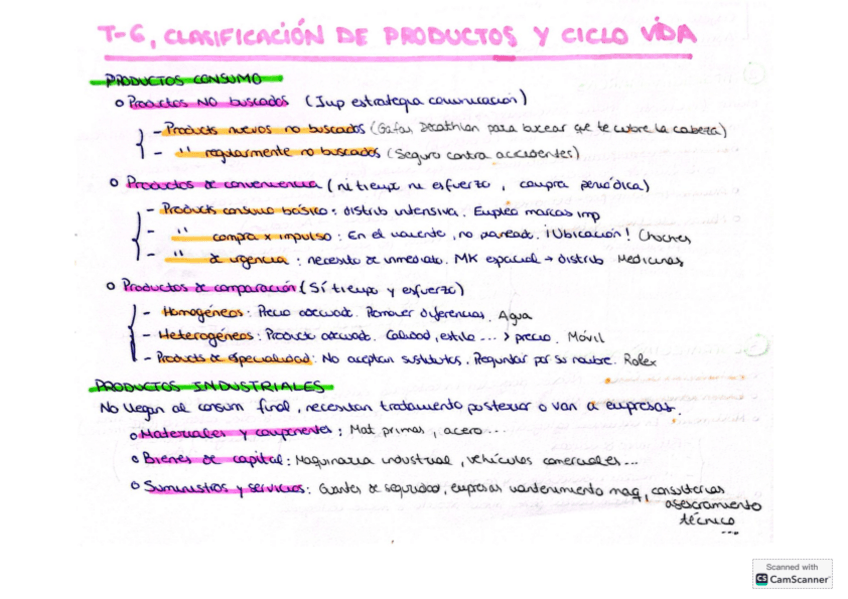 T-6, CLASIFICACIÓN DE PRODUCTOS Y CICLO VIDA
PRODUCTOS CONSUMO
o Productos NO buscados (Imp estrategia comunicación)
- Products nuevos no buscados (Gafas Decathlon para bucear que te cubre la cabeza)
- '' regularmente no buscados (Seguro contra accidentes)
o Productos de conveniencia (ni tiemp ni esfuerzo, compra periódica)
- Products consumo básico: distrib intensiva. Empleo marcas imp
- '' compra x impulso: En el momento, no planead. ¡Ubicación! Chuches
- '' de urgencia: necesito de inmediato. MK espacial → distrib Medicinas
o Productos de comparación (Sí tiempo y esfuerzo)
- Homogéneos: Precio adecuad. Promover diferencias. Agua
- Heterogéneos: Producto adecuad. Calidad, estilo ... > precio. Móvil
- Products de especialidad: No aceptan sustitutos. Preguntar por su nombre. Rolex
PRODUCTOS INDUSTRIALES
No llegan al consum final, necesitan tratamiento posterior o van a empresas.
o Materiales y componentes: Mat primas, acero...
o Bienes de capital: Maquinaria industrial, vehículos comerciales...
o Suministros y servicios: Guantes de seguridad, empresas mantenimiento maq, consultorias
asesoramiento
técnico
...
Scanned with
CS CamScanner